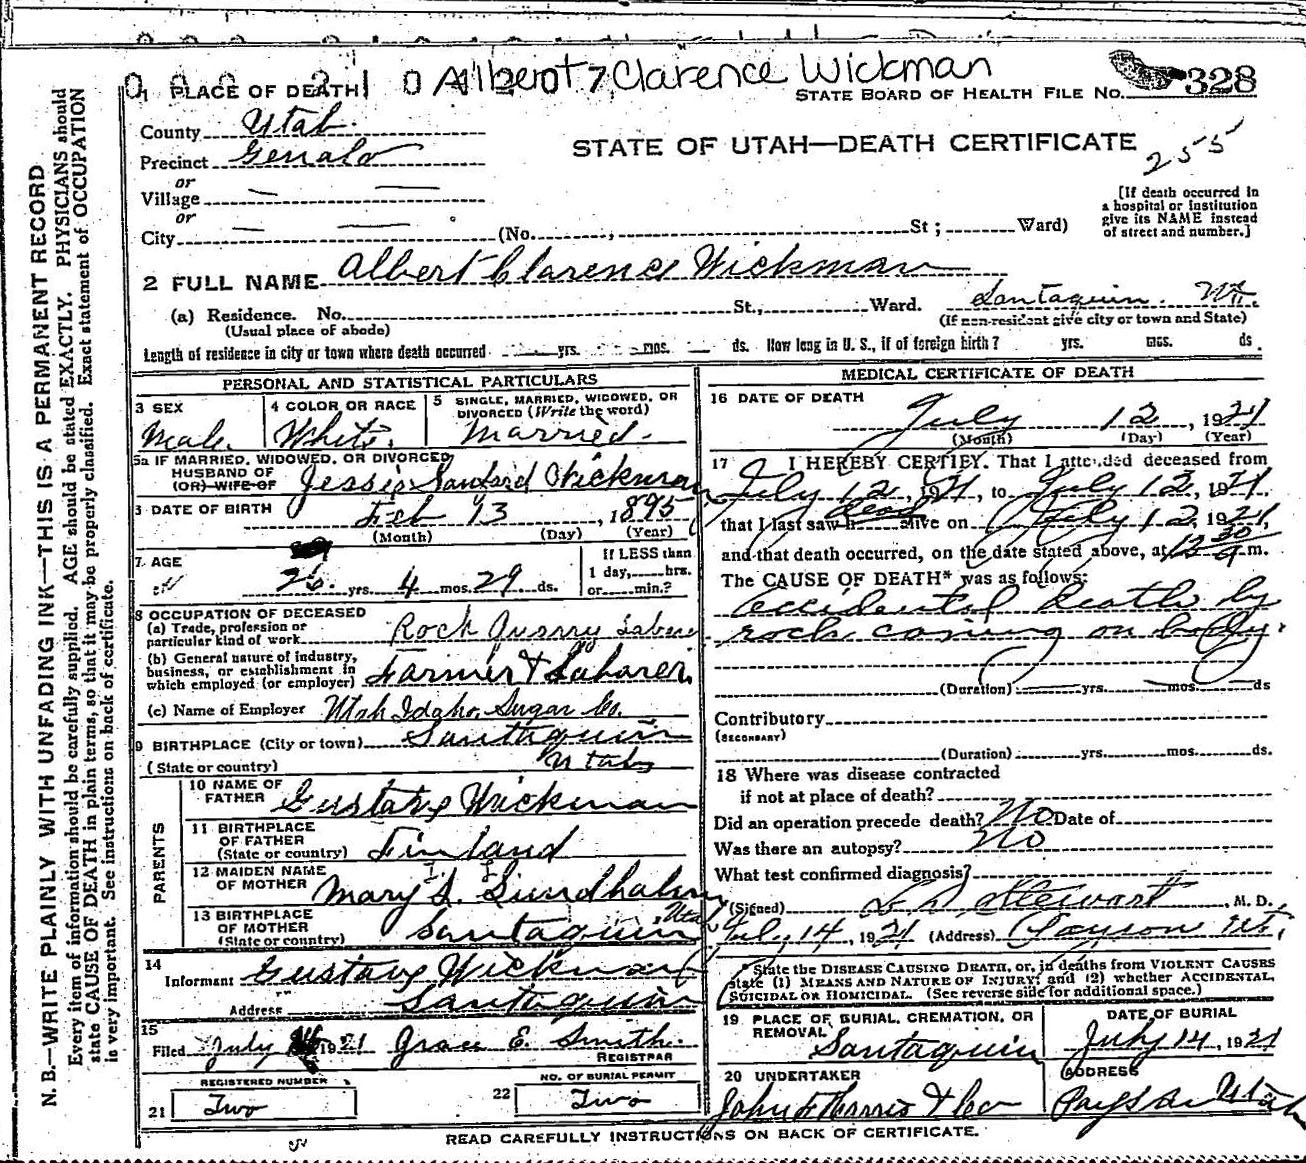 Albert Clarence Wickman
1 PLACE OF DEATH
STATE BOARD OF HEALTH FILE NO. 328
County Utah
STATE OF UTAH—DEATH CERTIFICATE
255
Precinct Genola
or
Village
or
City (No. , St ; Ward)
[If death occurred in
a hospital or institution
give its NAME instead
of street and number.]
2 FULL NAME Albert Clarence Wickman
(a) Residence. No. St., Ward. Santaquin Ut.
(Usual place of abode)
(If non-resident give city or town and State)
Length of residence in city or town where death occurred yrs. mos. ds. How long in U. S., if of foreign birth? yrs. mos. ds.
PERSONAL AND STATISTICAL PARTICULARS
3 SEX
Male
4 COLOR OR RACE
White
5 SINGLE, MARRIED, WIDOWED, OR
DIVORCED (Write the word)
Married
5a IF MARRIED, WIDOWED, OR DIVORCED
HUSBAND OF
(OR) WIFE OF
Jessie Wickman
DATE OF BIRTH Feb 13, 1895
(Month) (Day) (Year)
7. AGE
26 yrs. 4 mos. 29 ds.
If LESS than
1 day, hrs.
or min.?
8 OCCUPATION OF DECEASED
(a) Trade, profession or
particular kind of work Rock Quarry Laborer
(b) General nature of industry,
business, or establishment in
which employed (or employer) Farmer & Laborer.
(c) Name of Employer Utah Idaho Sugar Co.
9 BIRTHPLACE (City or town) Santaquin
(State or country) Utah
PARENTS
10 NAME OF
FATHER Gustave Wickman
11 BIRTHPLACE
OF FATHER
(State or country) Finland
12 MAIDEN NAME
OF MOTHER Mary
13 BIRTHPLACE
OF MOTHER
(State or country) Santaquin Utah
14
Informant Gustave Wickman
Address Santaquin
15
Filed July 1921 Grace E. Smith.
REGISTRAR
REGISTERED NUMBER
21 Two
NO. OF BURIAL PERMIT
22 Two
MEDICAL CERTIFICATE OF DEATH
16 DATE OF DEATH
July 12, 1921
(Month) (Day) (Year)
17 I HEREBY CERTIFY. That I attended deceased from
July 12, 1921, to July 12, 1921
that I last saw h dead alive on July 12, 1921,
and that death occurred, on the date stated above, at 12 30 m.
The CAUSE OF DEATH* was as follows:
Accidental death by
rock caving on body.
(Duration) yrs. mos. ds
Contributory
(SECONDARY)
(Duration) yrs. mos. ds.
18 Where was disease contracted
if not at place of death?
Did an operation precede death? No Date of
Was there an autopsy? No
What test confirmed diagnosis?
(Signed) L D Stewart, M. D.
July 14, 1921 (Address) Payson Ut.
* State the DISEASE CAUSING DEATH, or, in deaths from VIOLENT CAUSES
state (1) MEANS AND NATURE OF INJURY; and (2) whether ACCIDENTAL,
SUICIDAL OR HOMICIDAL. (See reverse side for additional space.)
19 PLACE OF BURIAL, CREMATION, OR
REMOVAL
Santaquin
DATE OF BURIAL
July 14, 1921
20 UNDERTAKER
John F Harris & Co
ADDRESS
Payson Utah
READ CAREFULLY INSTRUCTIONS ON BACK OF CERTIFICATE.
N. B.—WRITE PLAINLY WITH UNFADING INK—THIS IS A PERMANENT RECORD
Every item of information should be carefully supplied. AGE should be stated EXACTLY. PHYSICIANS should
state CAUSE OF DEATH in plain terms, so that it may be properly classified. Exact statement of OCCUPATION
is very important. See instructions on back of certificate.